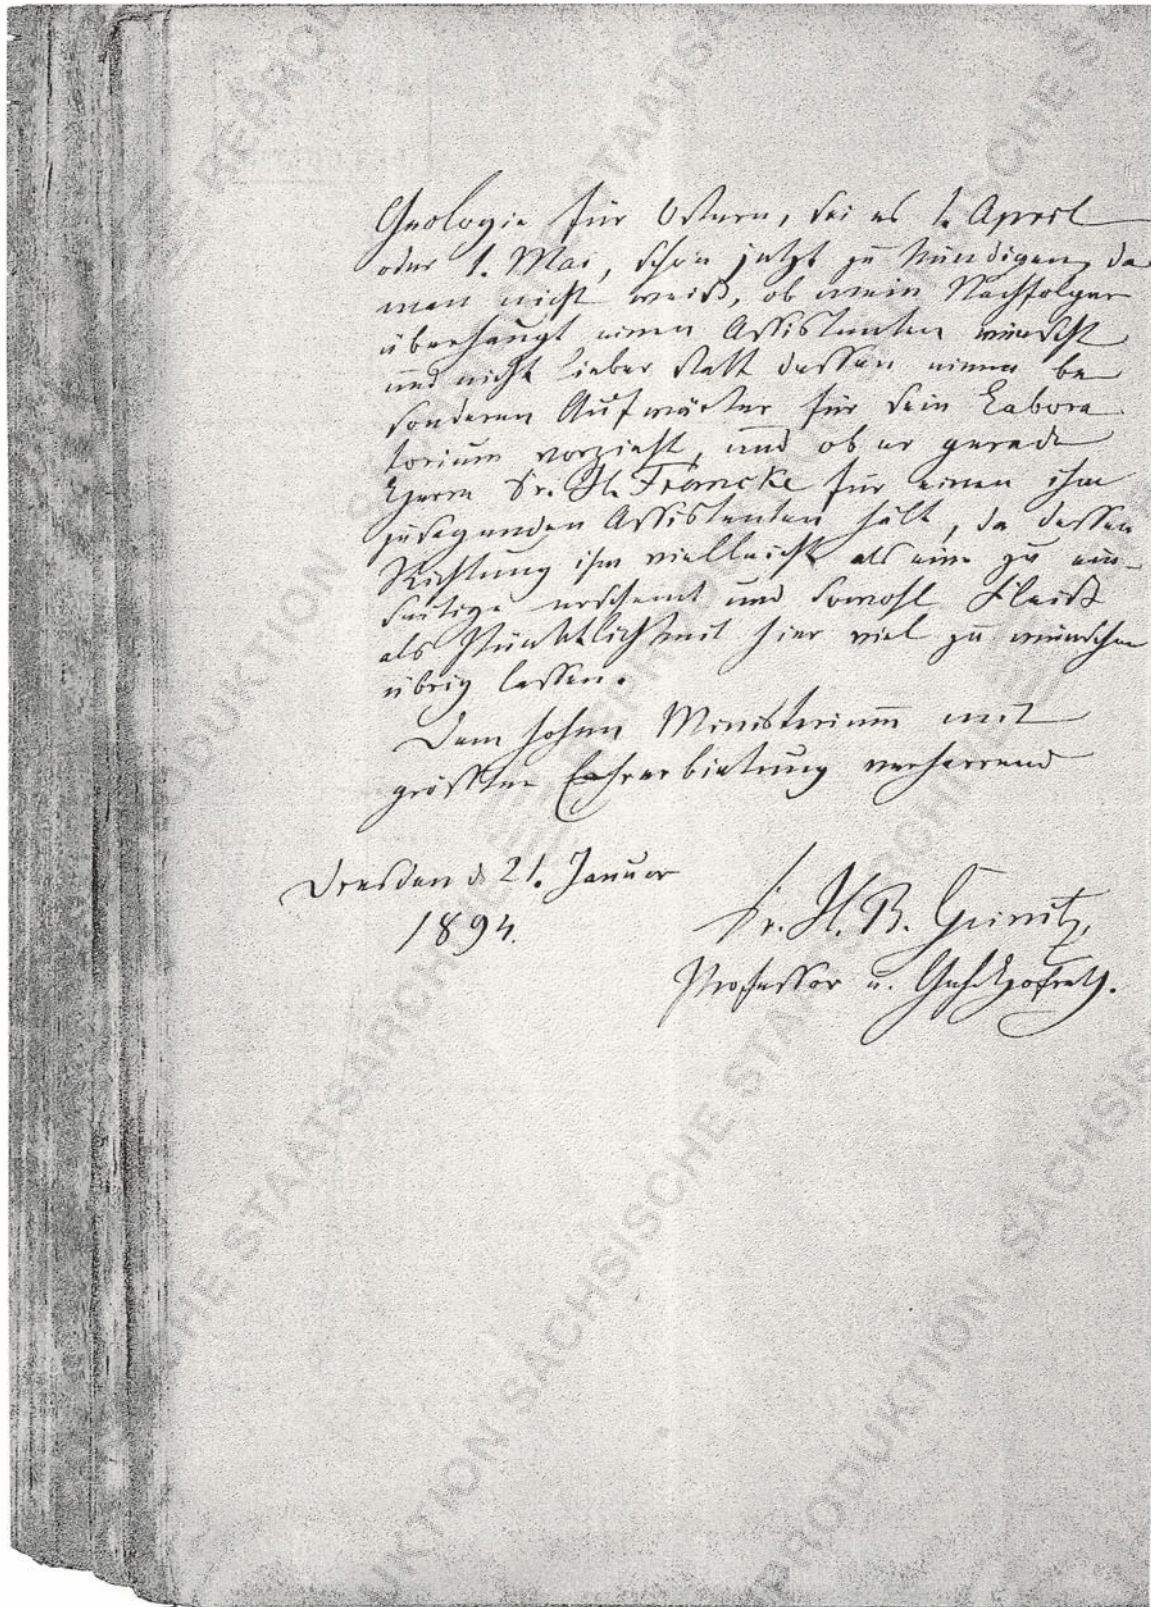 Geologie für Ostern, sei es 1. April
oder 1. Mai, schon jetzt zu kündigen, da
man nicht weiß, ob mein Nachfolger
überhaupt einen Assistenten wünscht
und nicht lieber statt dessen einen be
sonderen Aufwärter für sein Labora
torium vorzieht, und ob er gerade
Herrn Dr. H. Francke für einen ihm
zusagenden Assistenten hält, da dessen
Richtung ihm vielleicht als eine zu ein-
seitige erscheint und sowohl Fleiß
als Pünktlichkeit hier viel zu wünschen
übrig lassen.
Dem hohen Ministerium mit
größter Ehrerbietung verharrend
Dresden d. 21. Januar
1894.
Dr. H. B. Geinitz,
Professor u. Geh. Hofrath.